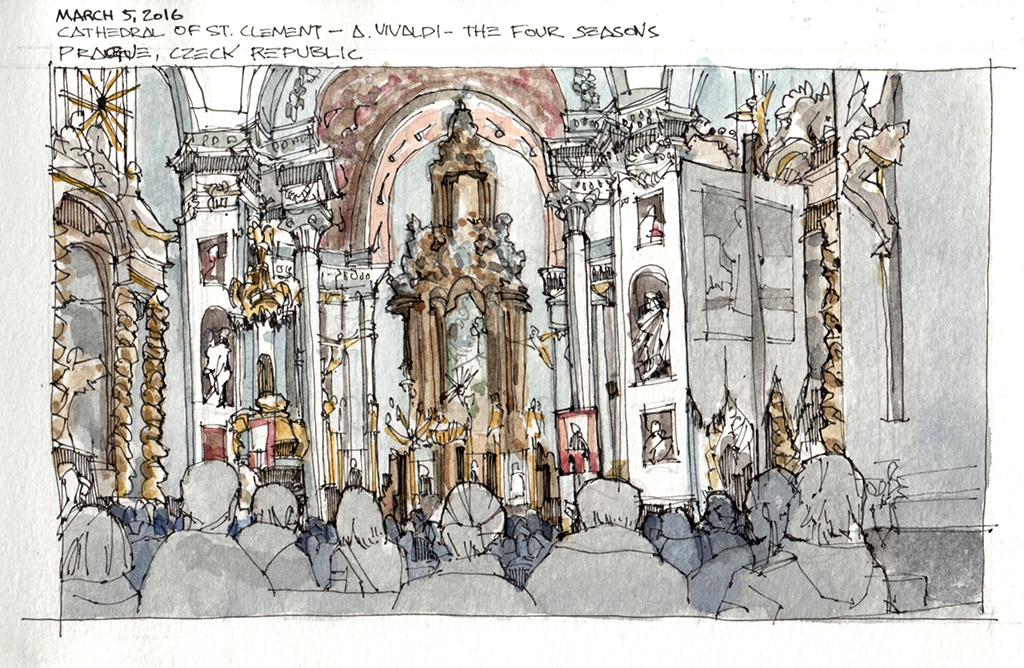 MARCH 5, 2016
CATHEDRAL OF ST. CLEMENT - A. VIVALDI - THE FOUR SEASONS
PRAGUE, CZECK REPUBLIC